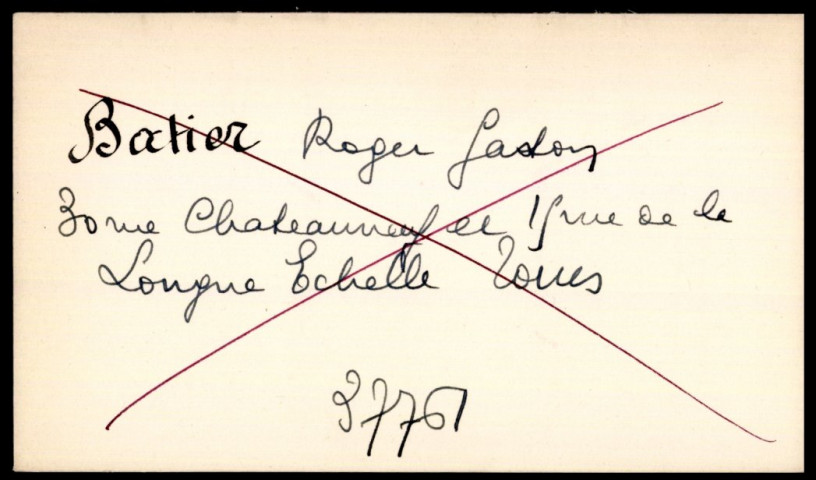 Batier Roger Gaston
30 rue Chateauneuf et 15 rue de la
Longue Echelle Tours
37761